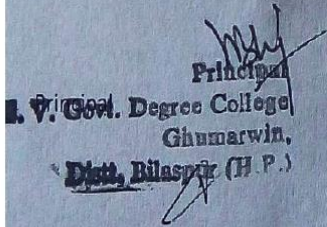 Principal
Principal
V. Govt. Degree College
Ghumarwin,
Distt. Bilaspur (H.P.)